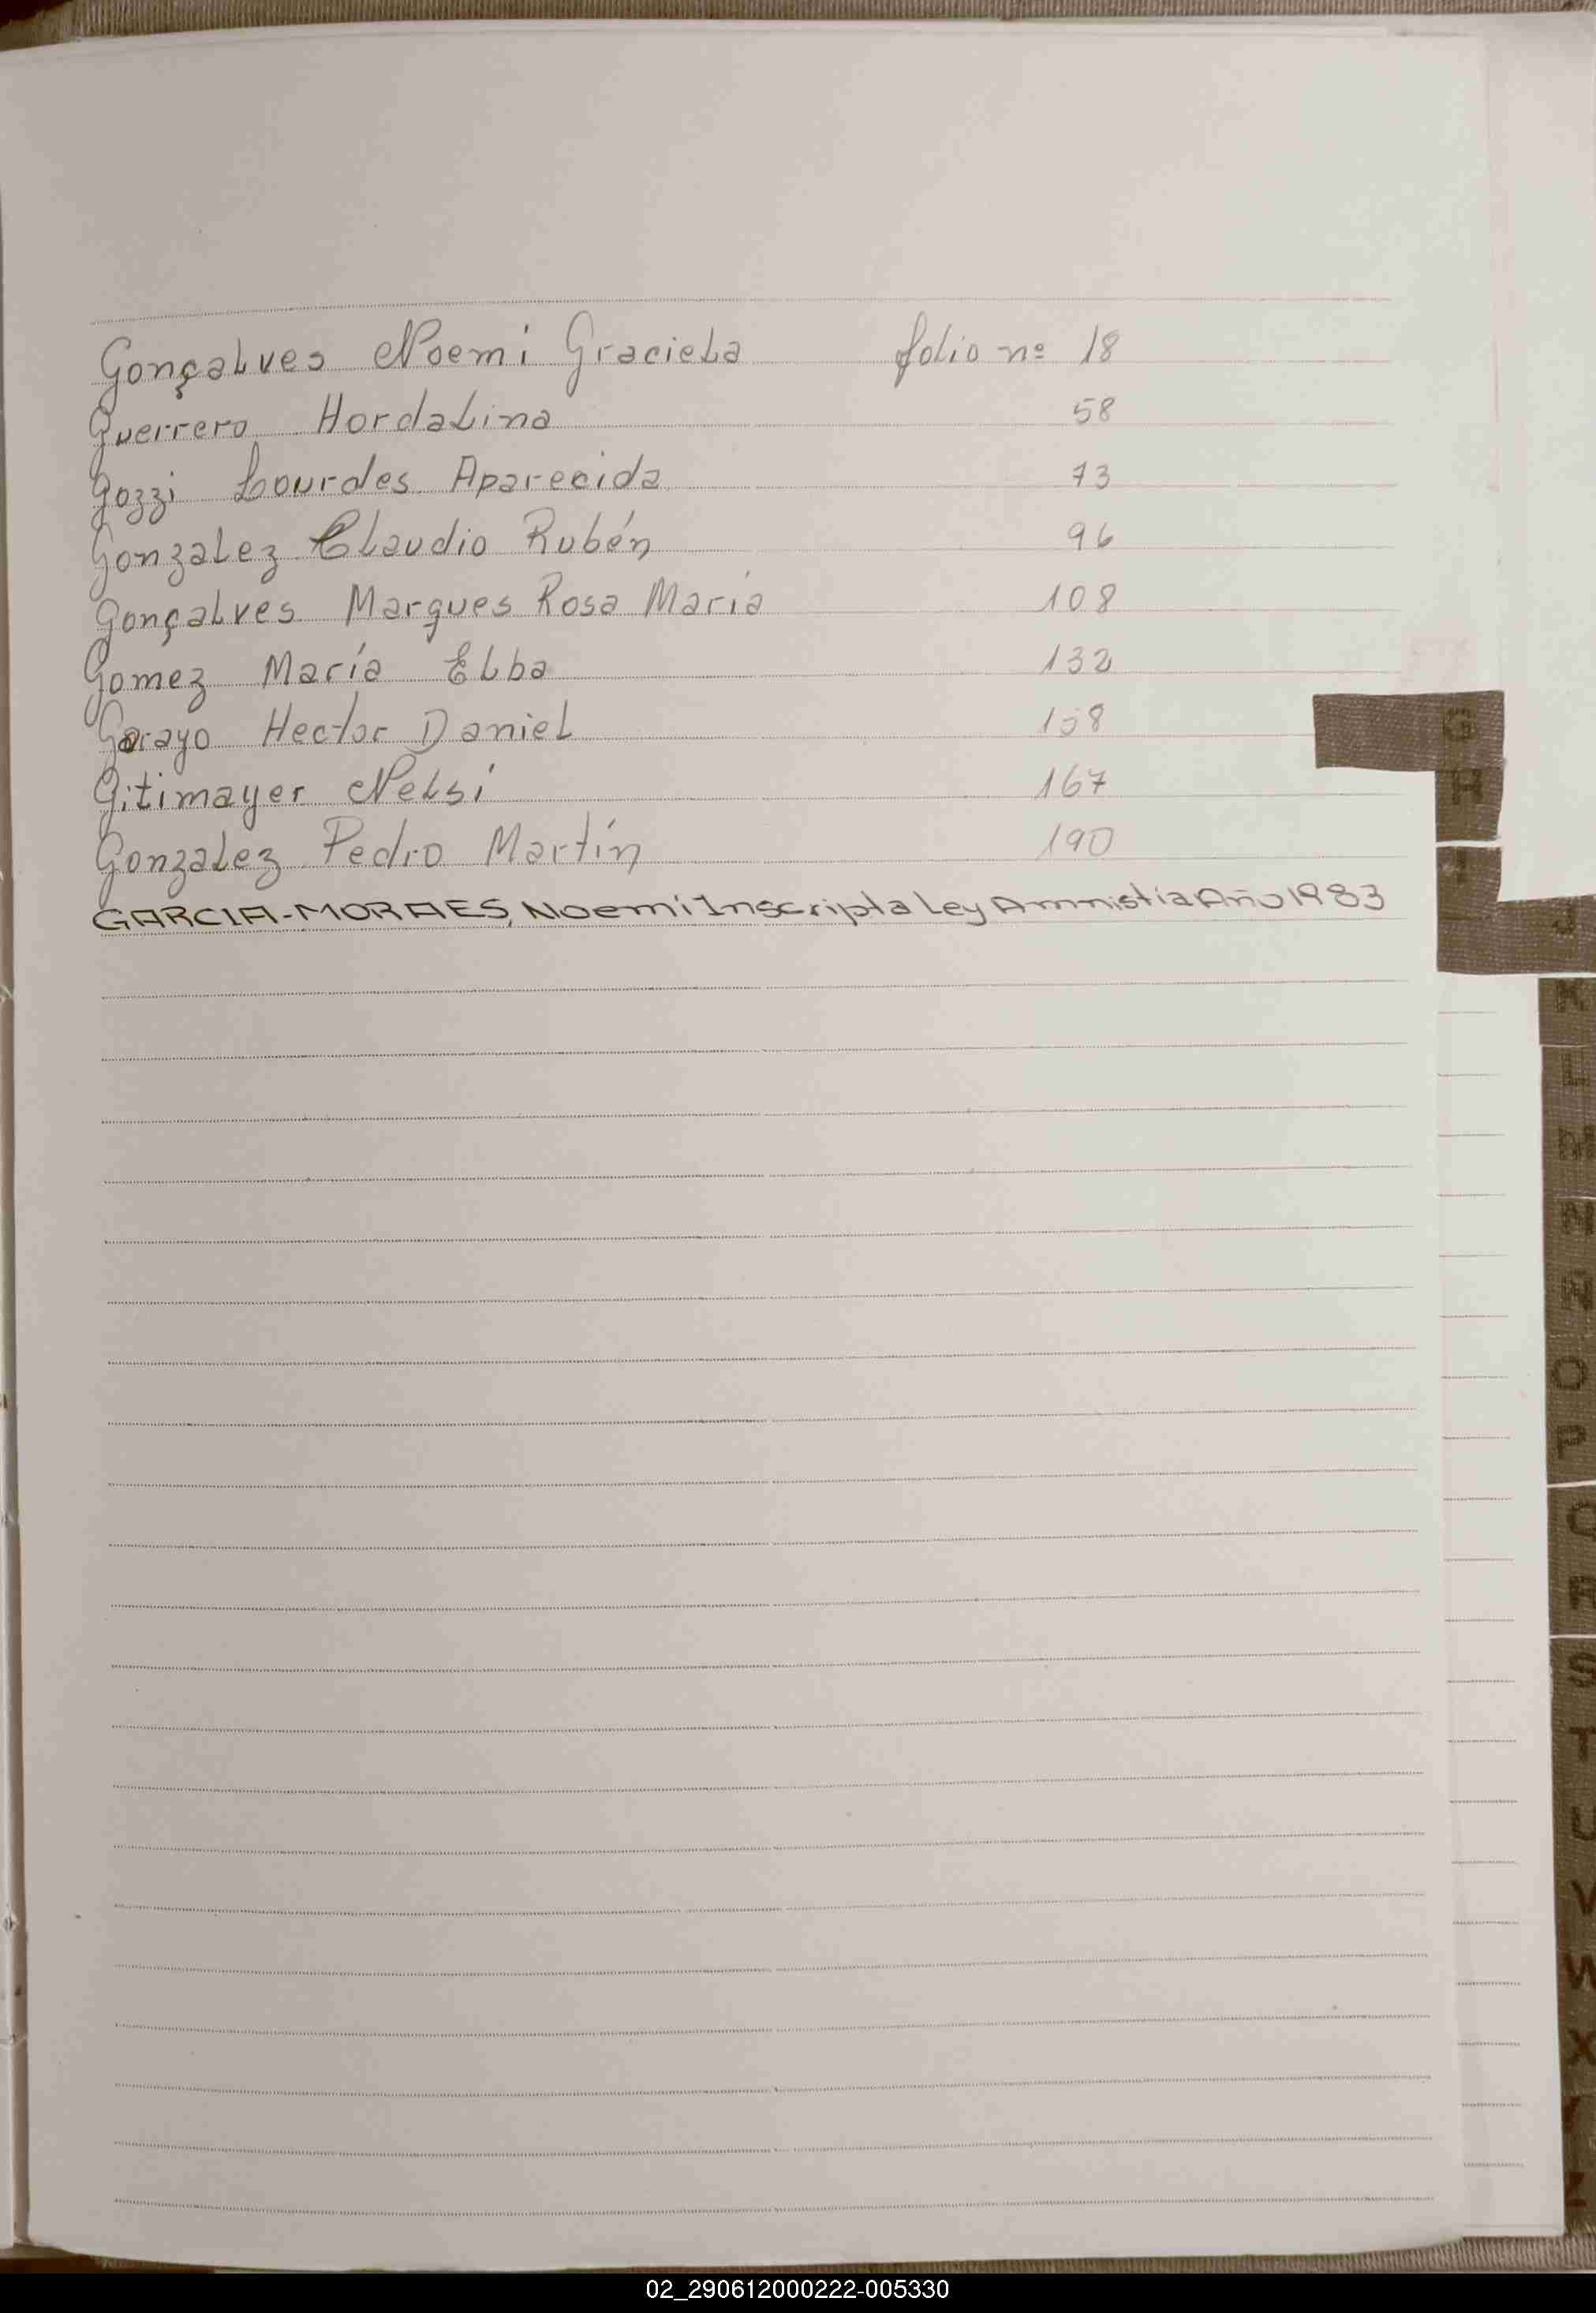 Gonçalves Noemi Graciela folio nº 18
Guerrero Hordalina 58
Gozzi Lourdes Aparecida 73
Gonzalez Claudio Rubén 96
Gonçalves Marques Rosa María 108
Gomez María Elba 132
Garayo Hector Daniel 158
Gitimayer Nelsi 167
Gonzalez Pedro Martín 190
GARCIA-MORAES, Noemí Inscripta Ley Amnistía Año 1983
G
H
I
J
K
L
M
N
Ñ
O
P
Q
R
S
T
U
V
W
X
Y
Z
02_290612000222-005330